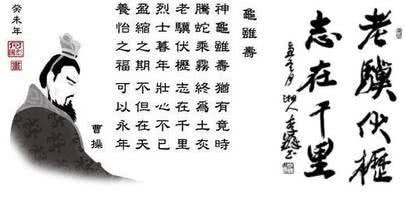 老驥伏櫪
志在千里
龜雖壽
神龜雖壽 猶有竟時
騰蛇乘霧 終為土灰
老驥伏櫪 志在千里
烈士暮年 壯心不已
盈縮之期 不但在天
養怡之福 可以永年
曹操
癸未年